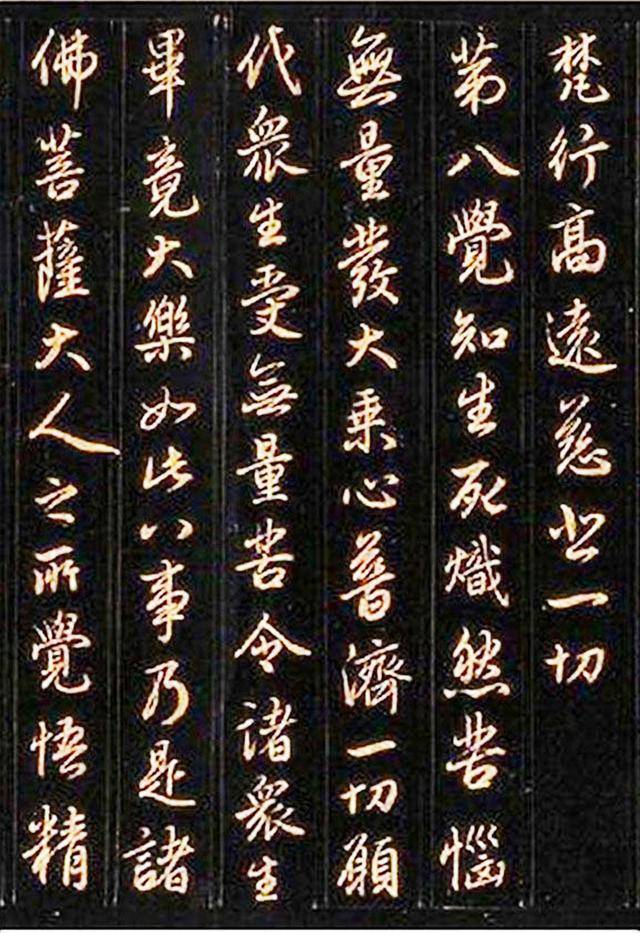 梵行高遠慈悲一切
第八覺知生死熾然苦惱
無量發大乘心普濟一切願
代衆生受無量苦令諸衆生
畢竟大樂如此八事乃是諸
佛菩薩大人之所覺悟精